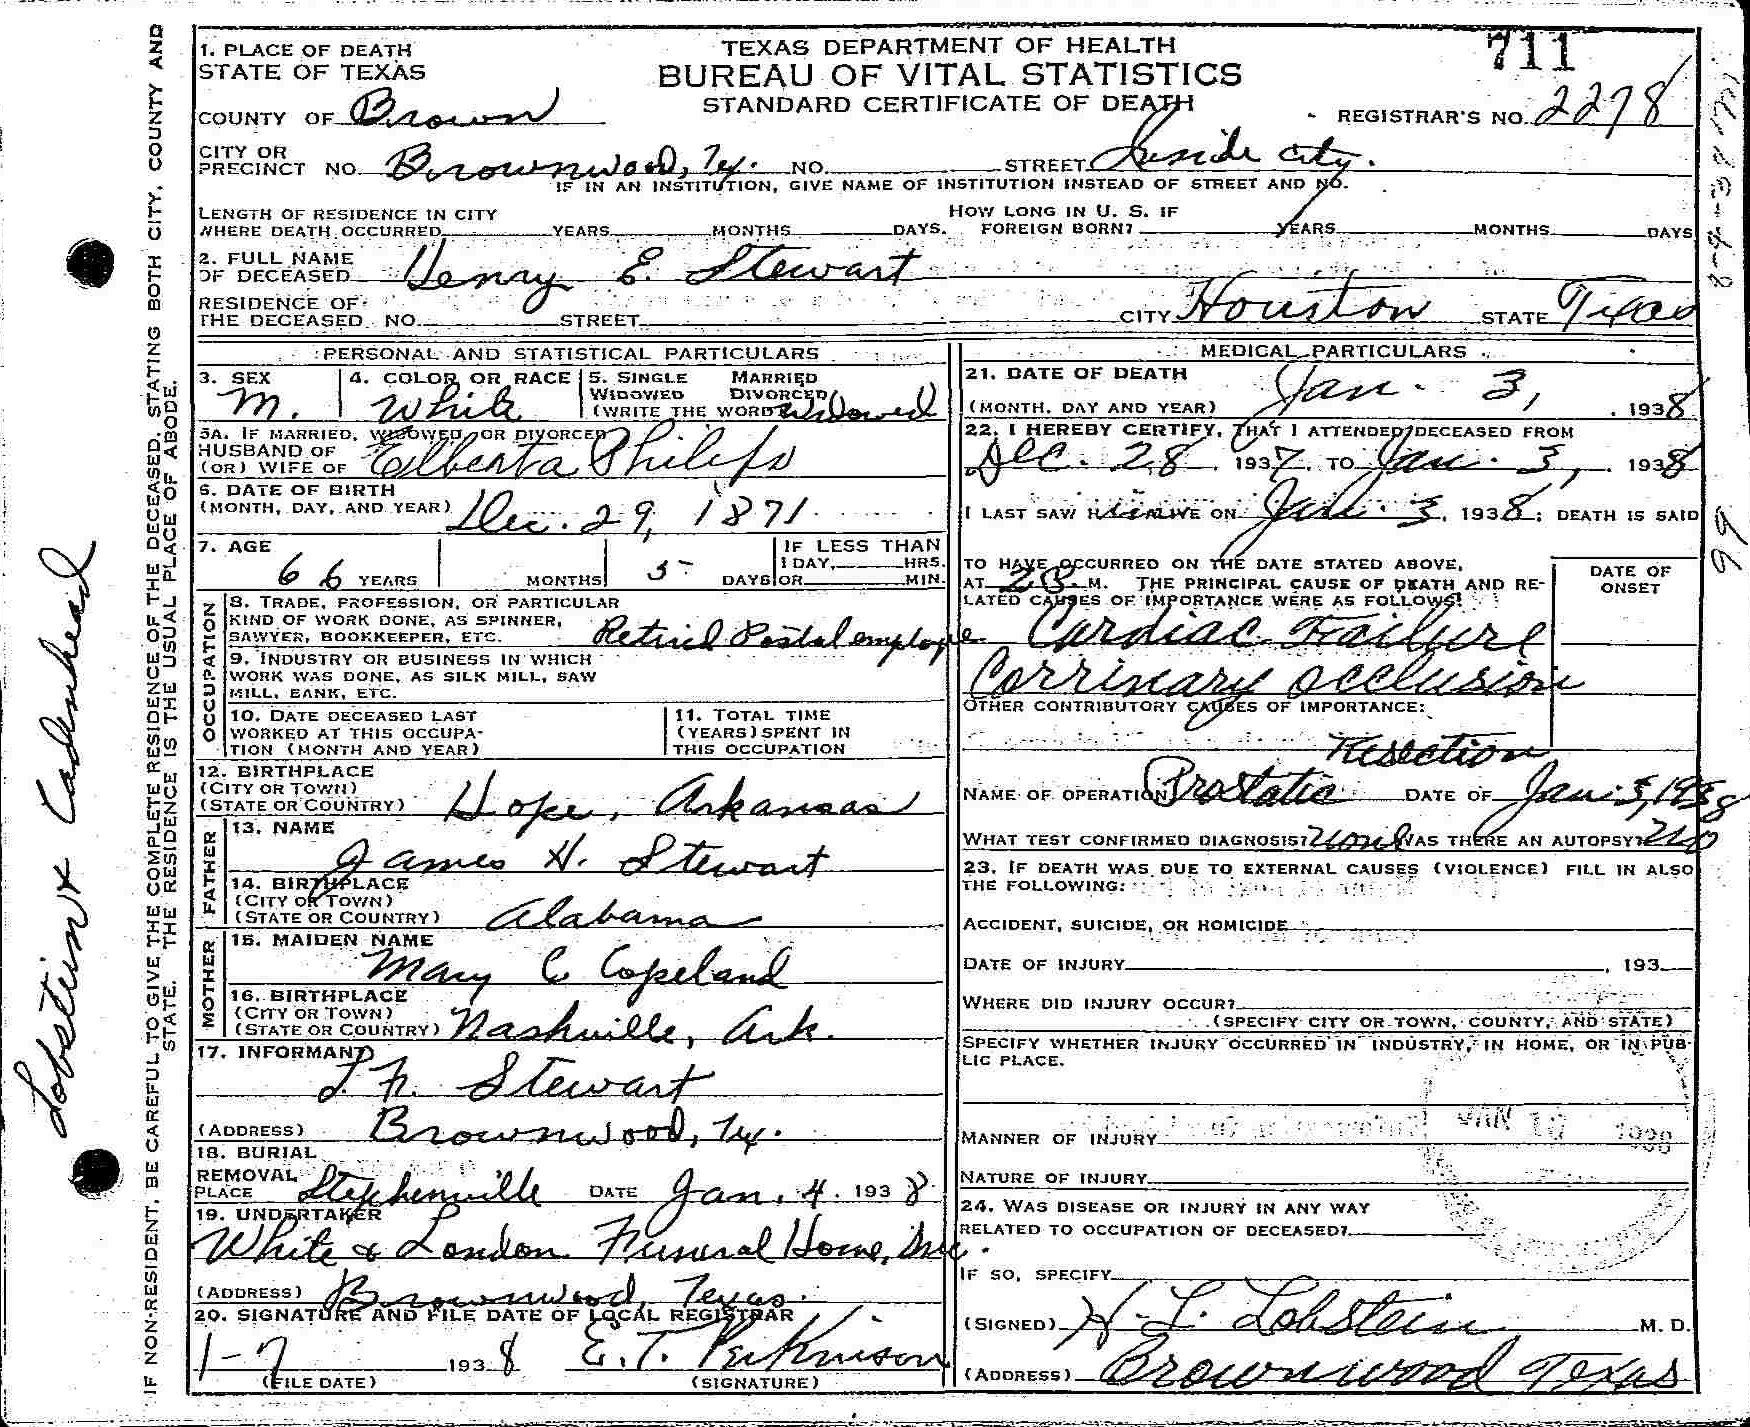 711
TEXAS DEPARTMENT OF HEALTH
BUREAU OF VITAL STATISTICS
STANDARD CERTIFICATE OF DEATH
REGISTRAR'S NO. 2278
1. PLACE OF DEATH
STATE OF TEXAS
COUNTY OF Brown
CITY OR
PRECINCT NO. Brownwood, Tex. NO. STREET Inside City.
IF IN AN INSTITUTION, GIVE NAME OF INSTITUTION INSTEAD OF STREET AND NO.
LENGTH OF RESIDENCE IN CITY
WHERE DEATH OCCURRED YEARS MONTHS DAYS.
HOW LONG IN U. S. IF
FOREIGN BORN? YEARS MONTHS DAYS
2. FULL NAME
OF DECEASED Henry E. Stewart
RESIDENCE OF
THE DECEASED NO. STREET CITY Houston STATE Texas
PERSONAL AND STATISTICAL PARTICULARS
3. SEX
M.
4. COLOR OR RACE
White
5. SINGLE MARRIED
WIDOWED DIVORCED
(WRITE THE WORD) Widowed
5A. IF MARRIED, WIDOWED, OR DIVORCED
HUSBAND OF
(OR) WIFE OF Elberta Philips
6. DATE OF BIRTH
(MONTH, DAY, AND YEAR) Dec. 29, 1871
7. AGE
66 YEARS MONTHS 5 DAYS
IF LESS THAN
1 DAY, HRS.
OR MIN.
OCCUPATION
8. TRADE, PROFESSION, OR PARTICULAR
KIND OF WORK DONE, AS SPINNER,
SAWYER, BOOKKEEPER, ETC. Retired Postal employe
9. INDUSTRY OR BUSINESS IN WHICH
WORK WAS DONE, AS SILK MILL, SAW
MILL, BANK, ETC.
10. DATE DECEASED LAST
WORKED AT THIS OCCUPA-
TION (MONTH AND YEAR)
11. TOTAL TIME
(YEARS) SPENT IN
THIS OCCUPATION
12. BIRTHPLACE
(CITY OR TOWN)
(STATE OR COUNTRY) Hope, Arkansas
FATHER
13. NAME
James H. Stewart
14. BIRTHPLACE
(CITY OR TOWN)
(STATE OR COUNTRY) Alabama
MOTHER
15. MAIDEN NAME
Mary C Copeland
16. BIRTHPLACE
(CITY OR TOWN)
(STATE OR COUNTRY) Nashville, Ark.
17. INFORMANT
Stewart
(ADDRESS) Brownwood, Tex.
18. BURIAL
REMOVAL
PLACE Stephenville DATE Jan. 4. 1938
19. UNDERTAKER
White & London Funeral Home, Inc.
(ADDRESS) Brownwood, Texas.
20. SIGNATURE AND FILE DATE OF LOCAL REGISTRAR
1-7 1938 E. T. Perkinson
(FILE DATE) (SIGNATURE)
MEDICAL PARTICULARS
21. DATE OF DEATH
(MONTH, DAY AND YEAR) Jan. 3, 1938
22. I HEREBY CERTIFY, THAT I ATTENDED DECEASED FROM
Dec. 28, 1937, TO Jan. 3, 1938
I LAST SAW HIM ALIVE ON Jan. 3, 1938; DEATH IS SAID
TO HAVE OCCURRED ON THE DATE STATED ABOVE,
AT M. THE PRINCIPAL CAUSE OF DEATH AND RE-
LATED CAUSES OF IMPORTANCE WERE AS FOLLOWS:
DATE OF
ONSET
Cardiac Failure
Corrinary occlusion
OTHER CONTRIBUTORY CAUSES OF IMPORTANCE:
Resection
NAME OF OPERATION Prostatic DATE OF Jan. 3, 1938
WHAT TEST CONFIRMED DIAGNOSIS? none WAS THERE AN AUTOPSY? no
23. IF DEATH WAS DUE TO EXTERNAL CAUSES (VIOLENCE) FILL IN ALSO
THE FOLLOWING:
ACCIDENT, SUICIDE, OR HOMICIDE
DATE OF INJURY , 193
WHERE DID INJURY OCCUR?
(SPECIFY CITY OR TOWN, COUNTY, AND STATE)
SPECIFY WHETHER INJURY OCCURRED IN INDUSTRY, IN HOME, OR IN PUB-
LIC PLACE.
MANNER OF INJURY
NATURE OF INJURY
24. WAS DISEASE OR INJURY IN ANY WAY
RELATED TO OCCUPATION OF DECEASED?
IF SO, SPECIFY
(SIGNED) H. L. Lobstein M. D.
(ADDRESS) Brownwood Texas
IF NON-RESIDENT, BE CAREFUL TO GIVE THE COMPLETE RESIDENCE OF THE DECEASED, STATING BOTH CITY, COUNTY AND
STATE. THE RESIDENCE IS THE USUAL PLACE OF ABODE.
Lobstein & Cadenhead
99